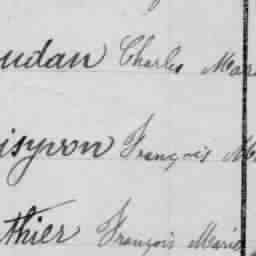 udan Charles Mar
isyvon François M
thier François Marie